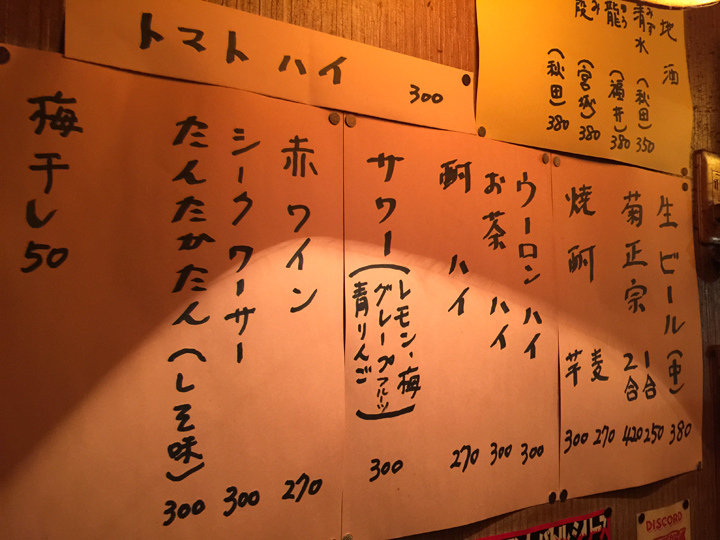 地酒
清水(秋田)350
龍(福井)380
(宮城)380
段(秋田)380
トマトハイ 300
生ビール(中)380
菊正宗 1合 250
2合 420
焼酎 麦 270
芋 300
ウーロンハイ 300
お茶ハイ 300
酎ハイ 270
サワー(レモン、梅
グレープフルーツ
青りんご)300
赤ワイン 270
シークワーサー 300
たんたかたん(しそ味)300
梅干し50
DISCORD